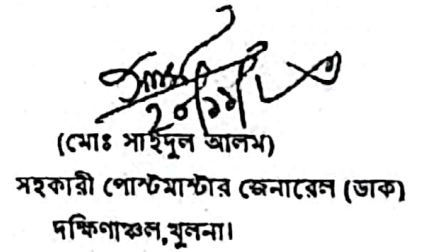 (মোঃ সাইদুল আলম)
সহকারী পোস্টমাস্টার জেনারেল (ডাক)
দক্ষিণাঞ্চল,খুলনা।